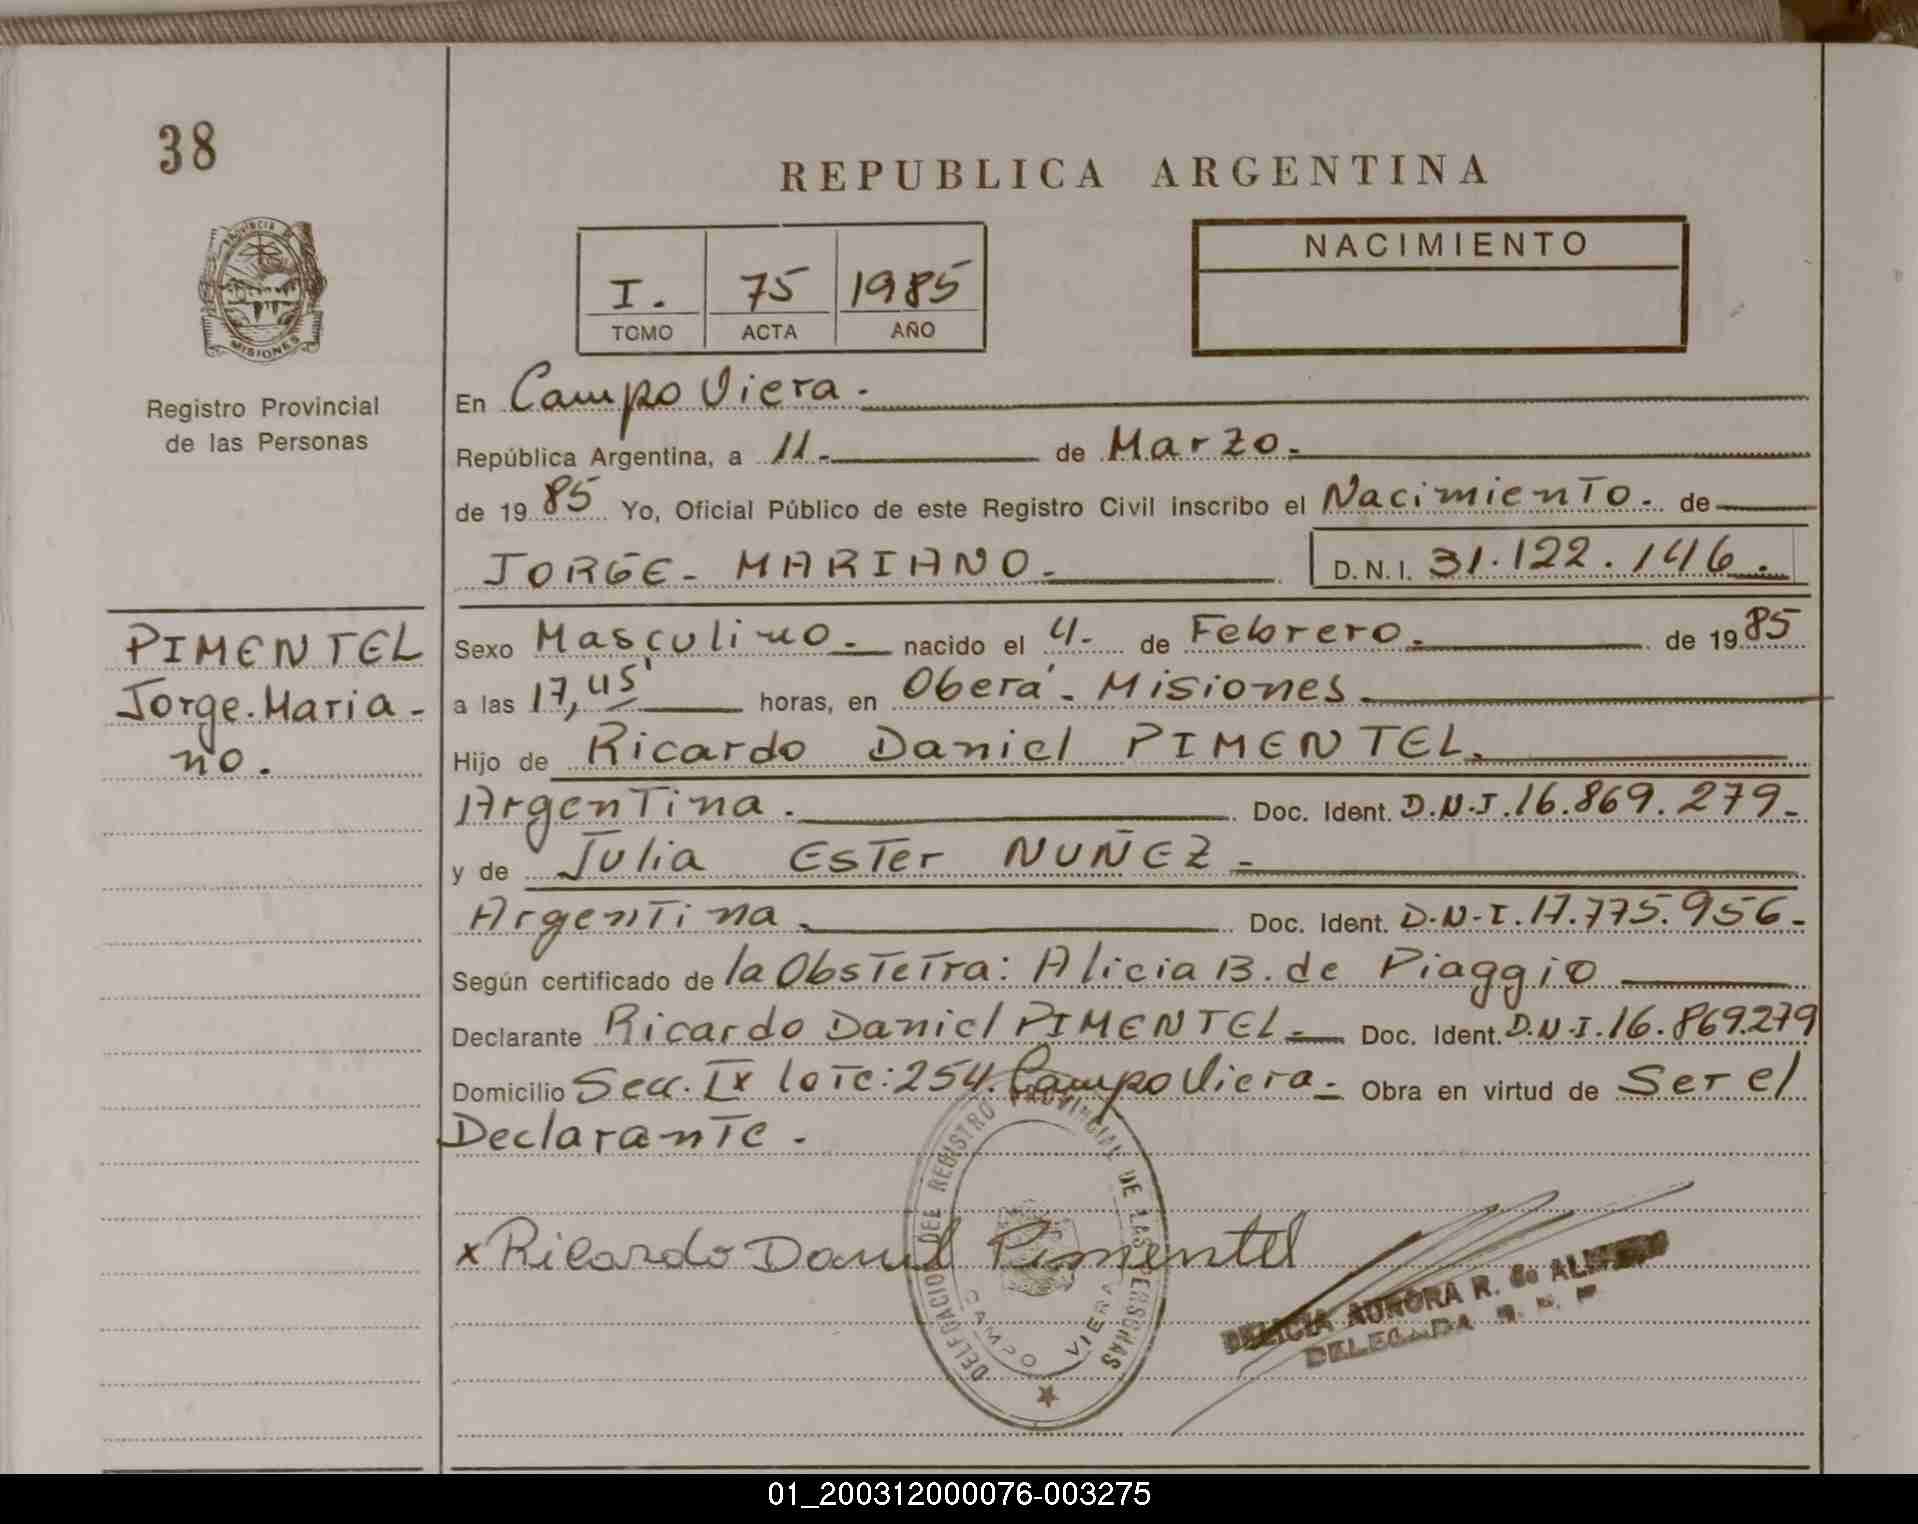 38
REPUBLICA ARGENTINA
PROVINCIA DE
MISIONES
Registro Provincial
de las Personas
I. 75 1985
TOMO ACTA AÑO
NACIMIENTO
En Campo Viera.
República Argentina, a 11. de Marzo.
de 1985 Yo, Oficial Público de este Registro Civil inscribo el Nacimiento. de
JORGE - MARIANO. D.N.I. 31.122.146.
PIMENTEL
Jorge.Maria-
no.
Sexo Masculino. nacido el 4. de Febrero. de 1985
a las 17,45' horas, en Oberá - Misiones
Hijo de Ricardo Daniel PIMENTEL.
Argentina. Doc. Ident. D.N.I. 16.869.279-
y de Julia Ester NUÑEZ -
Argentina. Doc. Ident. D.N.I. 17.775.956-
Según certificado de la Obstetra: Alicia B. de Piaggio
Declarante Ricardo Daniel PIMENTEL. Doc. Ident. D.N.I. 16.869.279
Domicilio Secc. IX lote: 254. Campo Viera. Obra en virtud de Ser el
Declarante.
x Ricardo Daniel Pimentel
DELEGACION DEL REGISTRO PROVINCIAL DE LAS PERSONAS
CAMPO VIERA
DELICIA AURORA R. de
DELEGADA
01_200312000076-003275